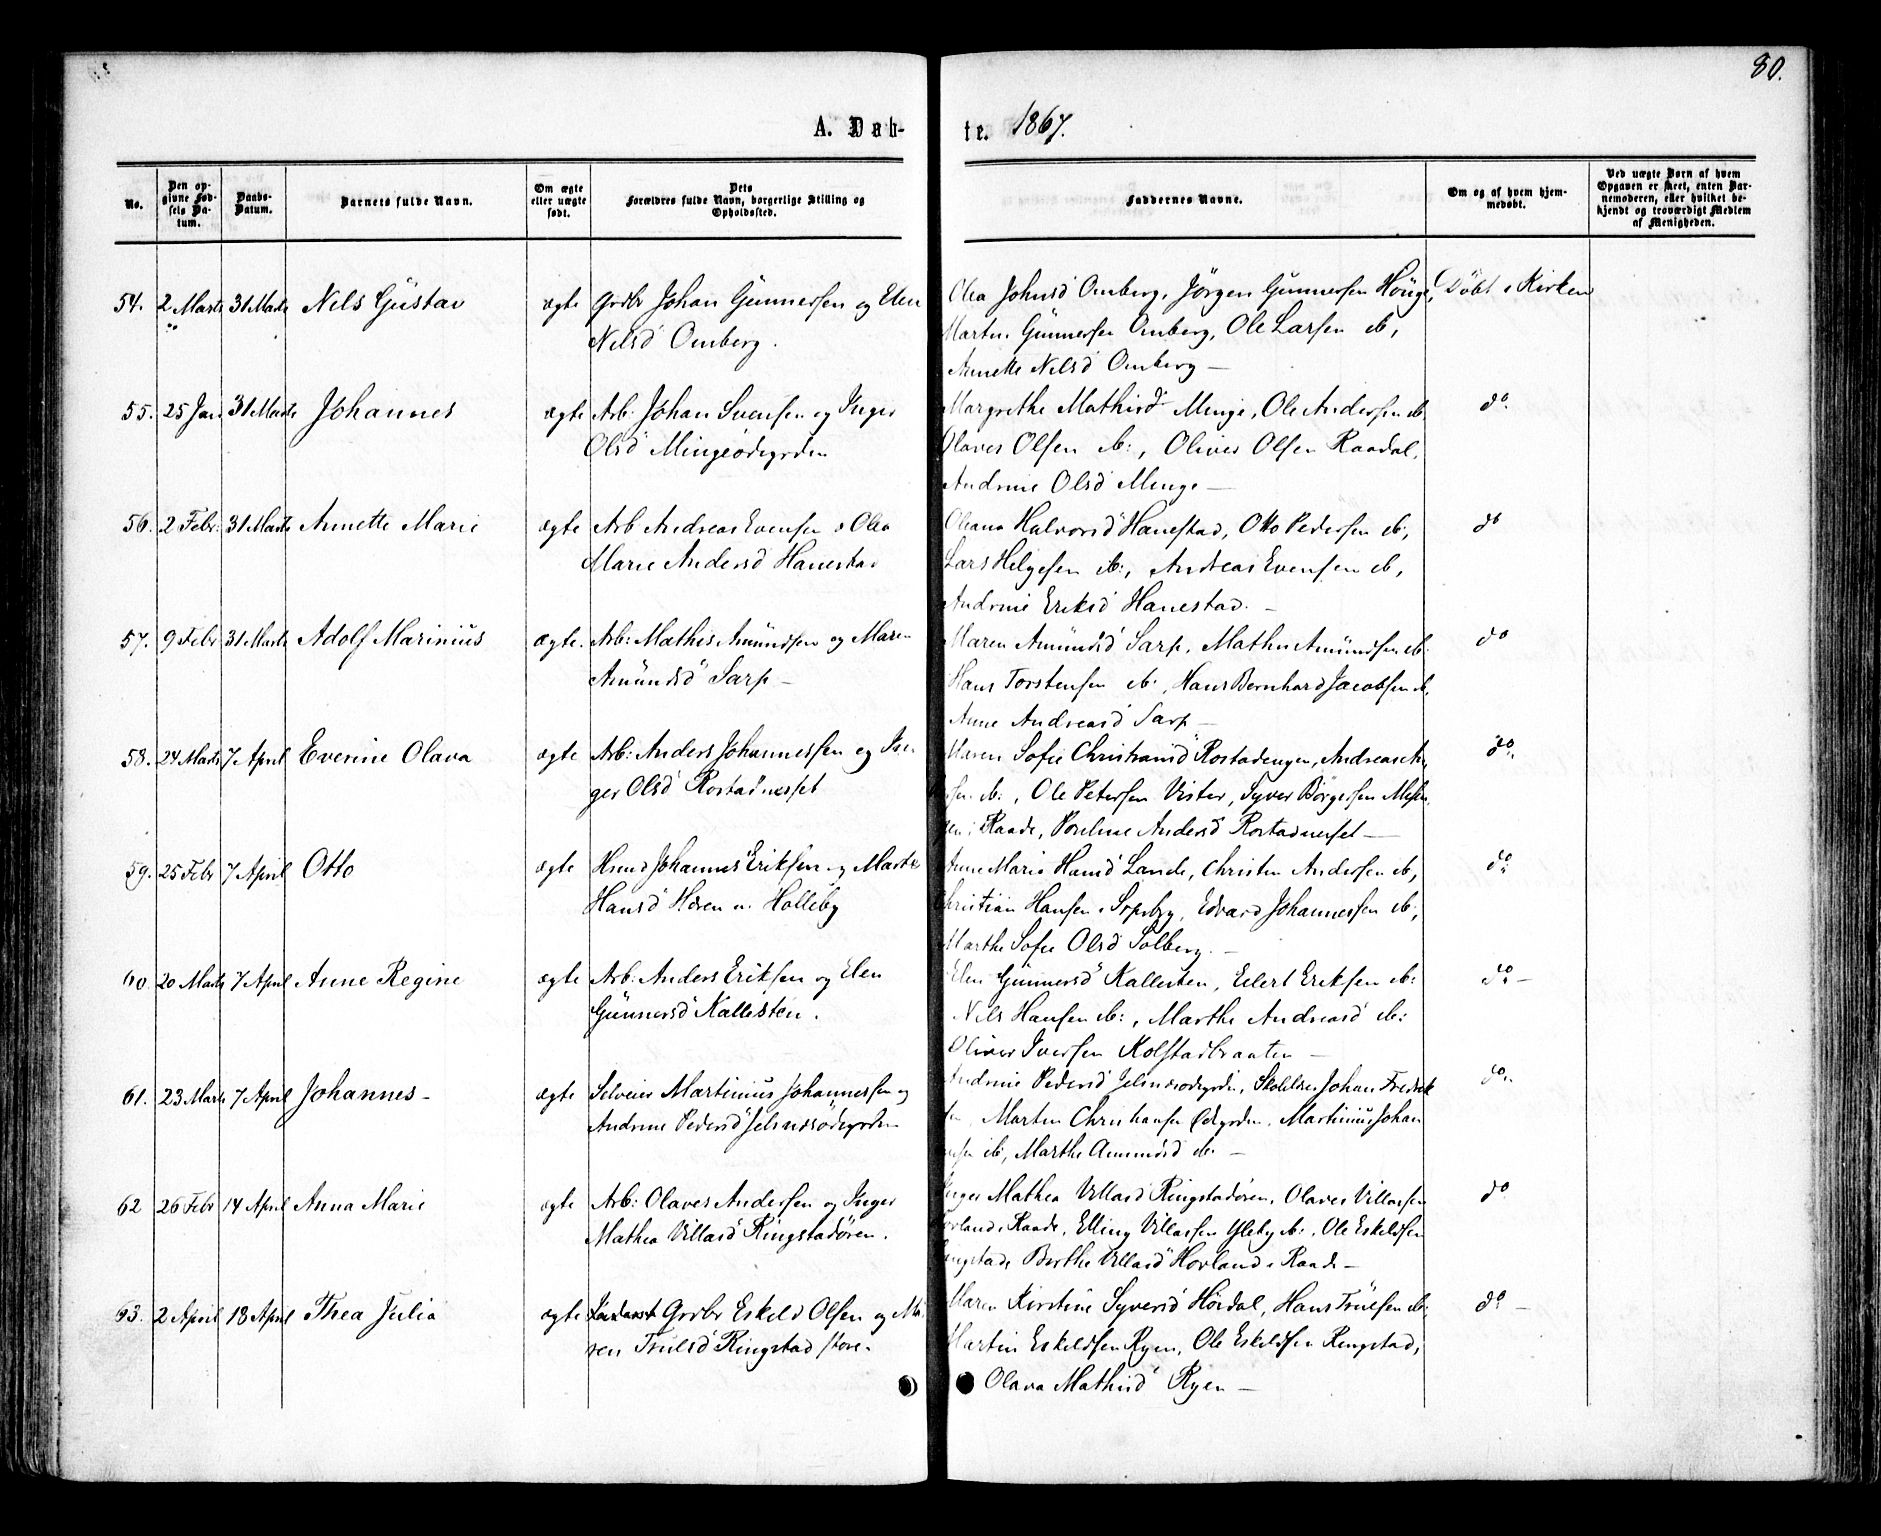 80.
A. Døb-
te. 1867.
No.
Den op-
givne Fød-
sels Da-
tum.
Daabs-
Datum.
Barnets fulde Navn.
Om ægte
eller uægte
født.
Dets
Forældres fulde Navn, borgerlige Stilling og
Opholdssted.
Faddernes Navne.
Om og af hvem hjem-
medøbt.
Ved uægte Børn af hvem
Opgaven er skeet, enten Bar-
nemoderen, eller hvilket be-
kjendt og troværdigt Medlem
af Menigheden.
54. 2 Marts 31 Marts Nels Gustav ægte Grdbr Johan Gunnersen og Elen
Nilsd Omberg.
Olea Johnsd Omberg, Jörgen Gunnersen Höuge,
Martin Gunnersen Omberg, Ole Larsen ib,
Annette Nilsd Omberg —
Döbt i Kirken
55. 25 Jan 31 Marts Johannes ægte Arb: Johan Svensen og Inger
Olsd Mingeødegrden
Margrethe Mathisd Minge, Ole Andersen ib
Olaves Olsen ib:, Oliver Olsen Raadal,
Andrine Olsd Minge —
do.
56. 2 Febr: 31 Marts Annette Marie ægte Arb Andreas Evensen o Olea
Marie Andersd Hanestad
Oleana Halvorsd Hanestad, Otto Pedersen ib,
Lars Helgesen ib:, Andreas Evensen ib,
Andrine Eriksd Hanestad. —
do
57. 9 Febr 31 Marts Adolf Marinius ægte. Arb: Mathis Amundsen og Maren
Amundsd Sarp —
Maren Amundsd Sarp, Mathis Amundsen ib:
Hans Torstensen ib., Hans Bernhard Jacobsen ib,
Anne Andreasd Sarp —
do
58. 24 Marts 7 April Evenine Olava ægte Arb: Anders Johannessen og In-
ger Olsd Rostadnesset
Maren Sofie Christiansd Rostadengen, Andreas
sen ib:, Ole Petersen Vister, Syver Börgersen
i Raade, Andersd Rostadnesset —
do.
59. 25 Febr 7 April Otto ægte Hmd Johannes Eriksen og Marthe
Hansd Hæren u. Holleby
Anne Marie Hansd Lande, Christen Andersen ib,
Christian Hansen i Srpsbrg, Edvard Johannessen ib,
Marthe Sofie Olsd Solberg. —
do.
60 20 Marts 7 April Anne Regine ægte Arb: Anders Eriksen og Elen
Gunnersd Kallesten.
Elen Gunnersd Kallesten, Eilert Eriksen ib:
Nils Hansen ib:, Marthe Andreasd ib:
Oliver Iversen Kolstadbraaten —
do. —
61. 23 Marts 7 April Johannes — ægte Selveier Martinius Johannessen og
Andrine Pedersd Jelsnesödegrden
Andrine Pedersd Jelsnesödegrden, Johan Fredrik
sen, Martin Christiansen Ödegrden, Martinius Johan
sen ib, Marthe Amundsd ib. —
do.
62 26 Febr 14 April Anna Marie ægte Arb: Olaves Andersen og Inger
Mathea Villasd Ringstadören.
Inger Mathea Villasd Ringstadören, Olaves Villassen
Hovland i Raade, Elling Villassen ib:, Ole Eskildsen
Ringstad, Berthe Villasd Hovland i Raade —
do
63. 2 April 18 April Thea Julia ægte Grdbr Eskild Olsen og Ma-
ren Trulsd Ringstad store.
Maren Kirstine Syversd Höidal, Hans Trulsen ib:
Martin Eskildsen Ryen, Ole Eskildsen Ringstad,
Olava Mathisd Ryen —
do —